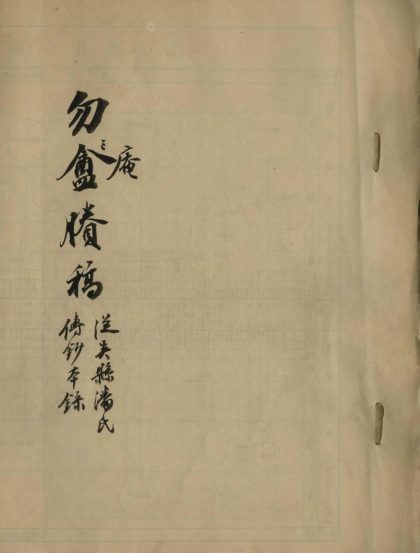 勿盦賸稿
庵
從吳縣潘氏
傳鈔本錄